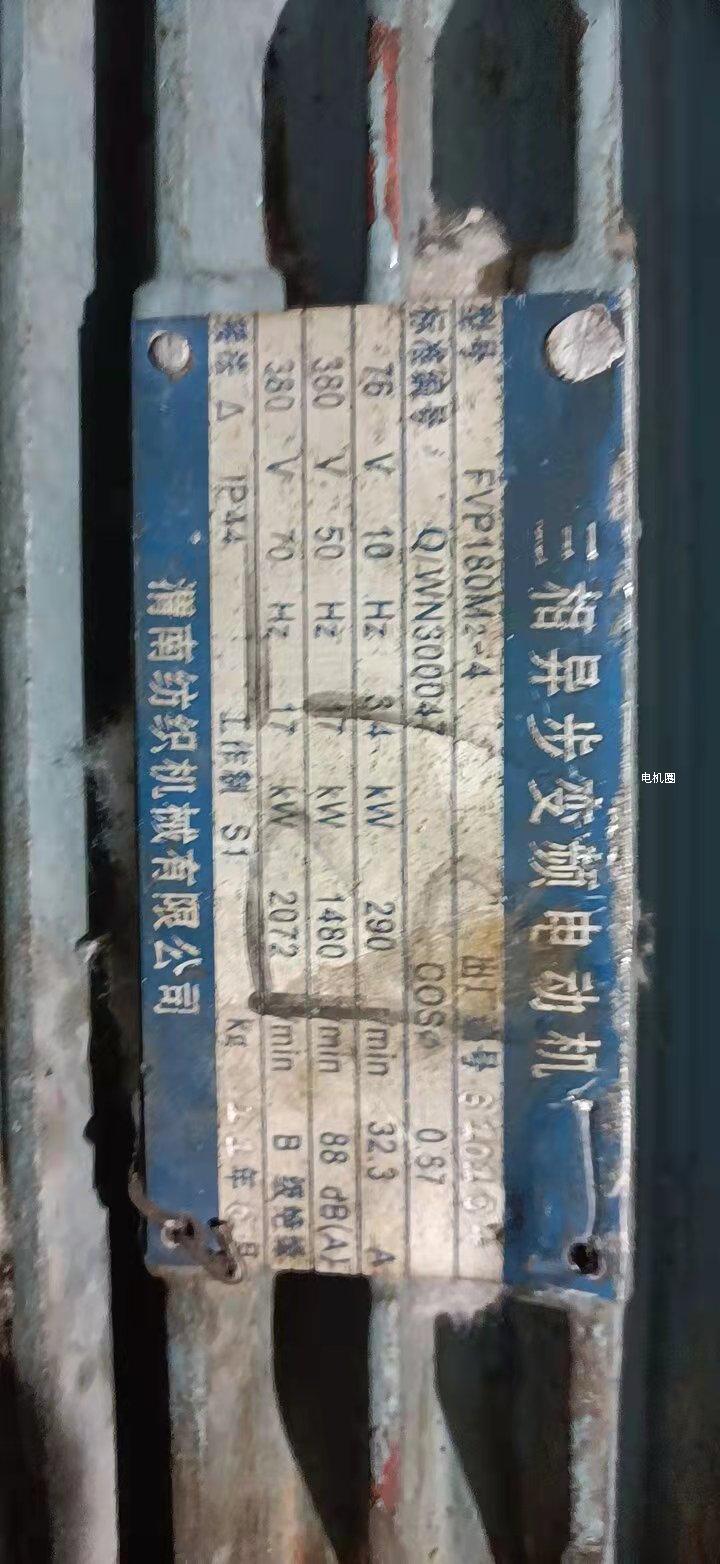 三相异步变频电动机
型号 FVP180M2-4 出厂 号
标准编号 Q/WN30004 COSφ 0.87
76 V 10 Hz 3.4 kW 290 /min 32.3 A
380 V 50 Hz 17 kW 1480 /min 88 dB(A)
380 V 70 Hz 17 kW 2072 /min B 级绝缘
接法 △ IP44 工作制 S1 kg 年 月
渭南纺织机械有限公司
电机圈